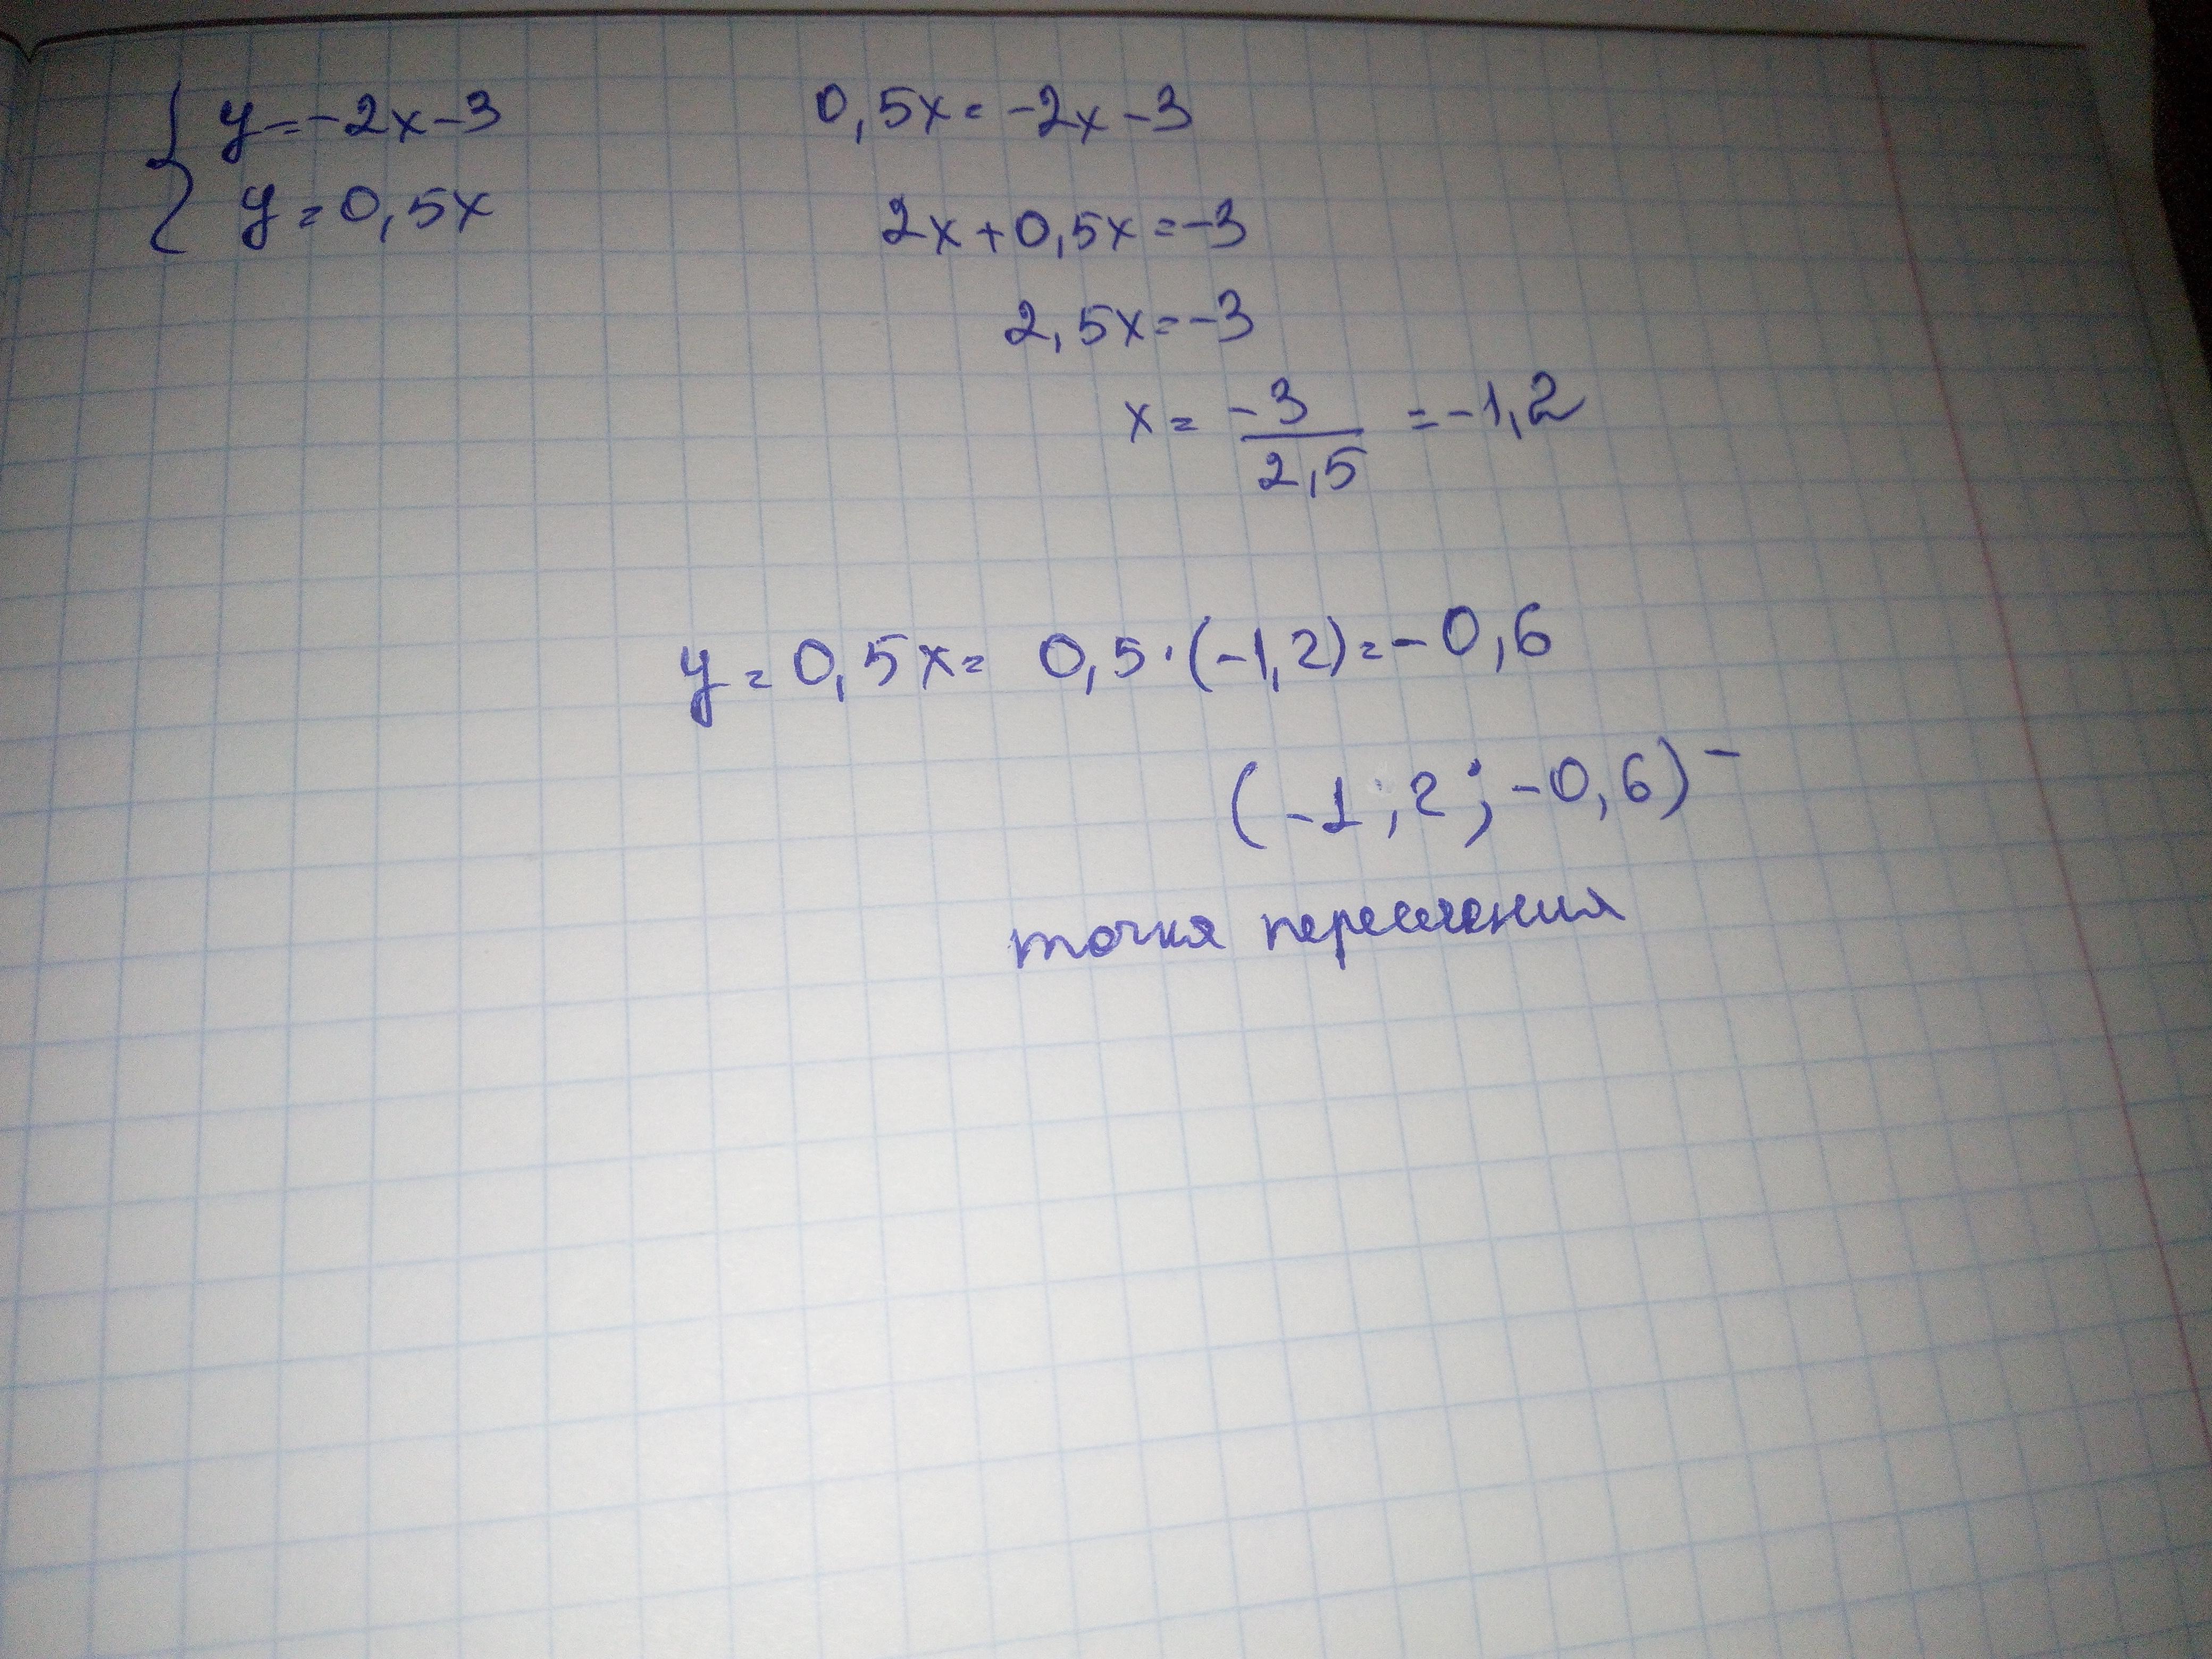 { y=-2x-3
y=0,5x
0,5x=-2x-3
2x+0,5x=-3
2,5x=-3
x= -3/2,5 =-1,2
y=0,5x= 0,5·(-1,2)=-0,6
(-1,2;-0,6)-
точка пересечения